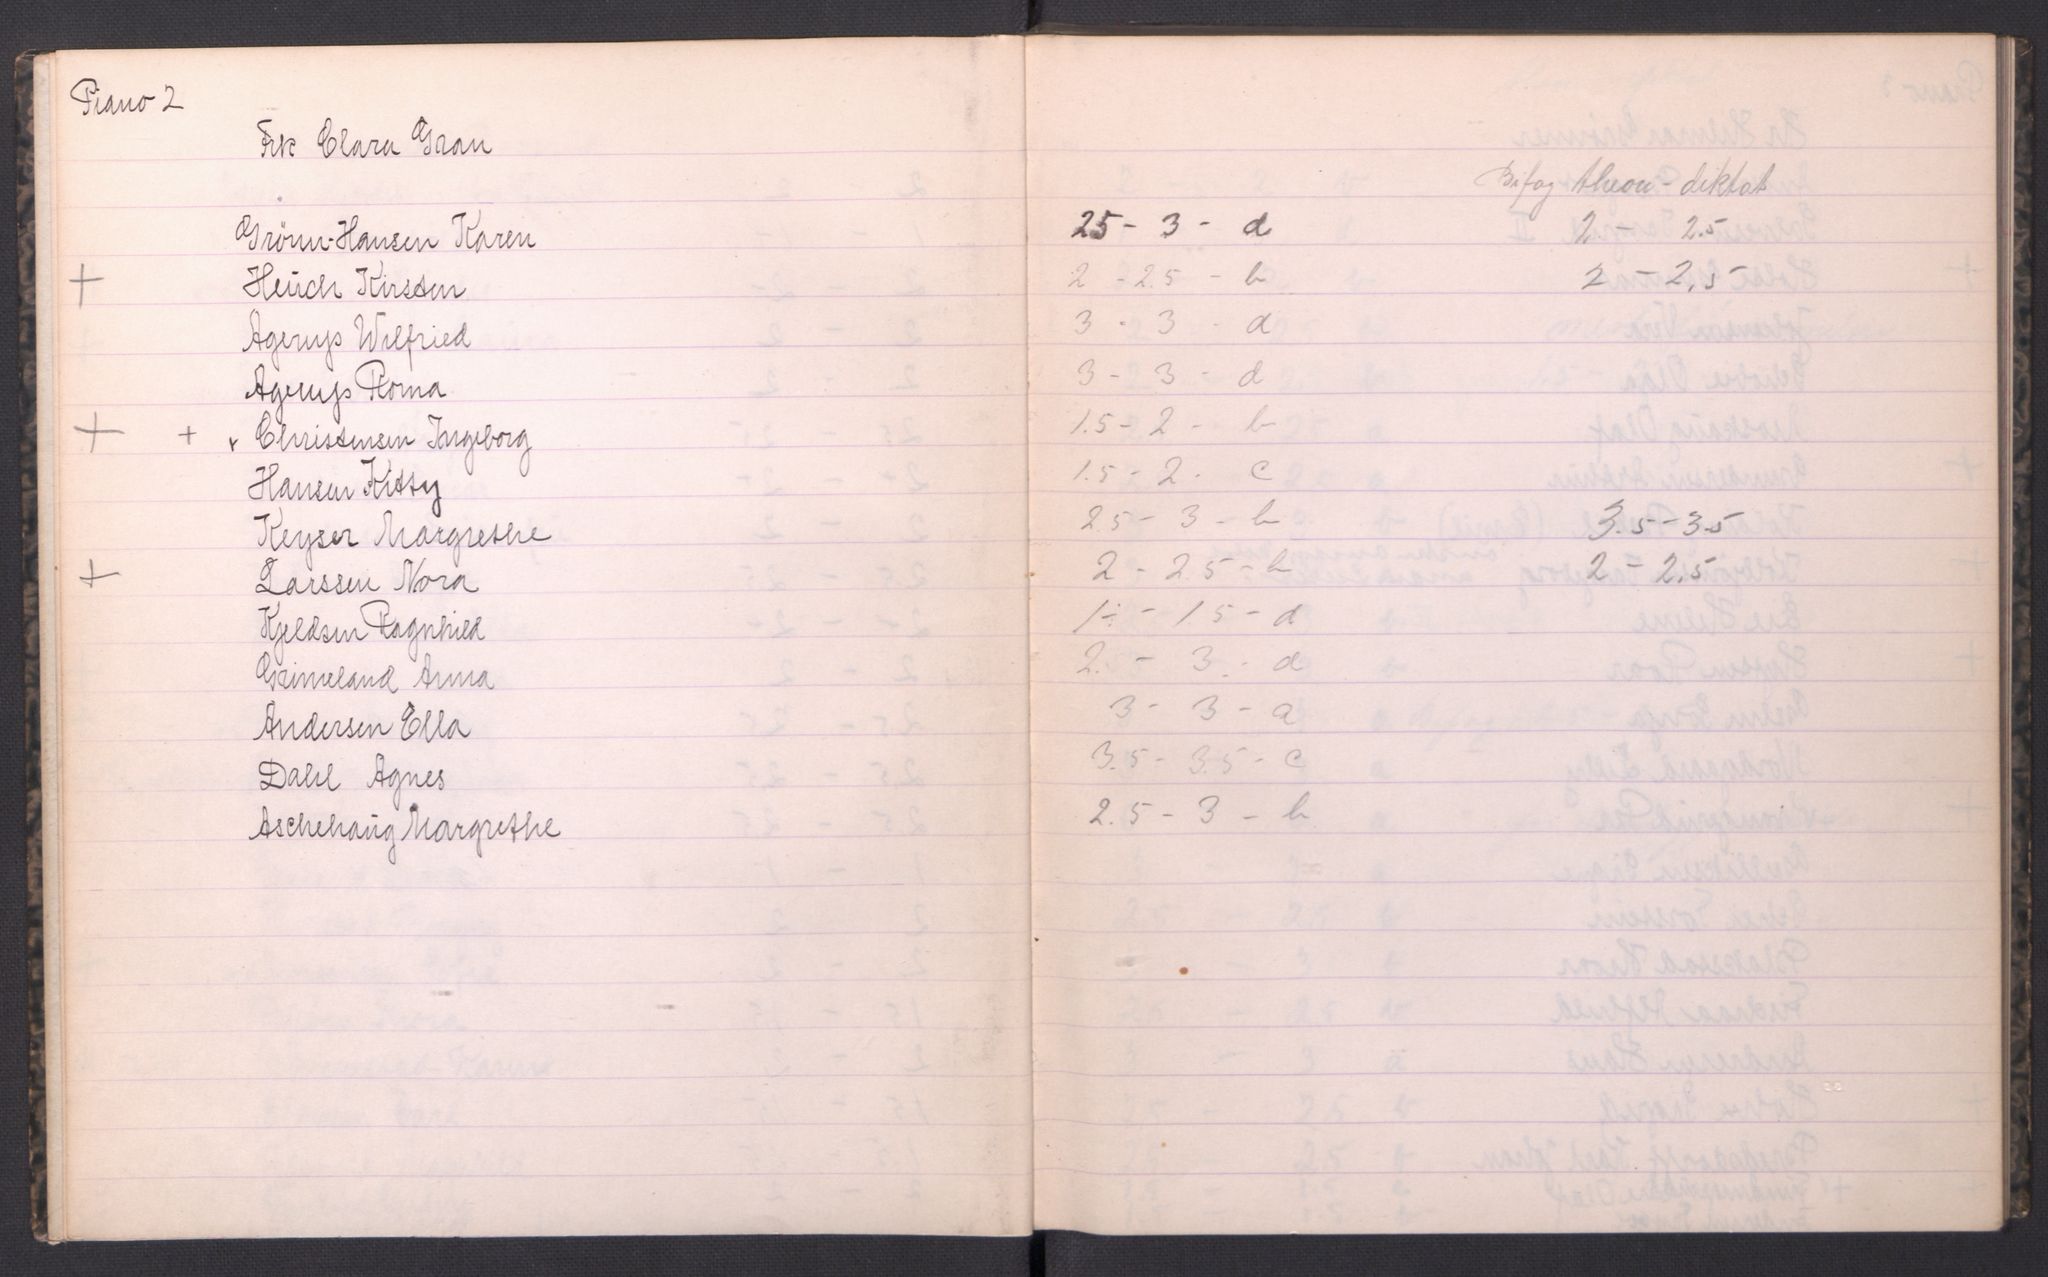 Piano 2
Frk Clara Gran
Bifag theori - diktat
Grönn-Hansen Karen 25 - 3 - d 2 - 2.5
+ Heuch Kirsten 2 - 2.5 - b 2 - 2,5
Agerups Wilfried 3 - 3 - d
Agerups Roma 3 - 3 - d
+ + v Christensen Ingeborg 1.5 - 2 - b
Hansen Kitty 1.5 - 2 - c
Keyser Margrethe 2.5 - 3 - b 3.5 - 3.5
+ Larssen Nora 2 - 2.5 - b 2 - 2,5
Kjeldsen Ragnhild 1÷ - 1 5 - d
Grimeland Anna 2. - 3 - d
Andersen Ella 3 - 3 - a
Dahl Agnes 3.5 - 3.5 - c
Aschehaŭg Margrethe 2.5 - 3 - b